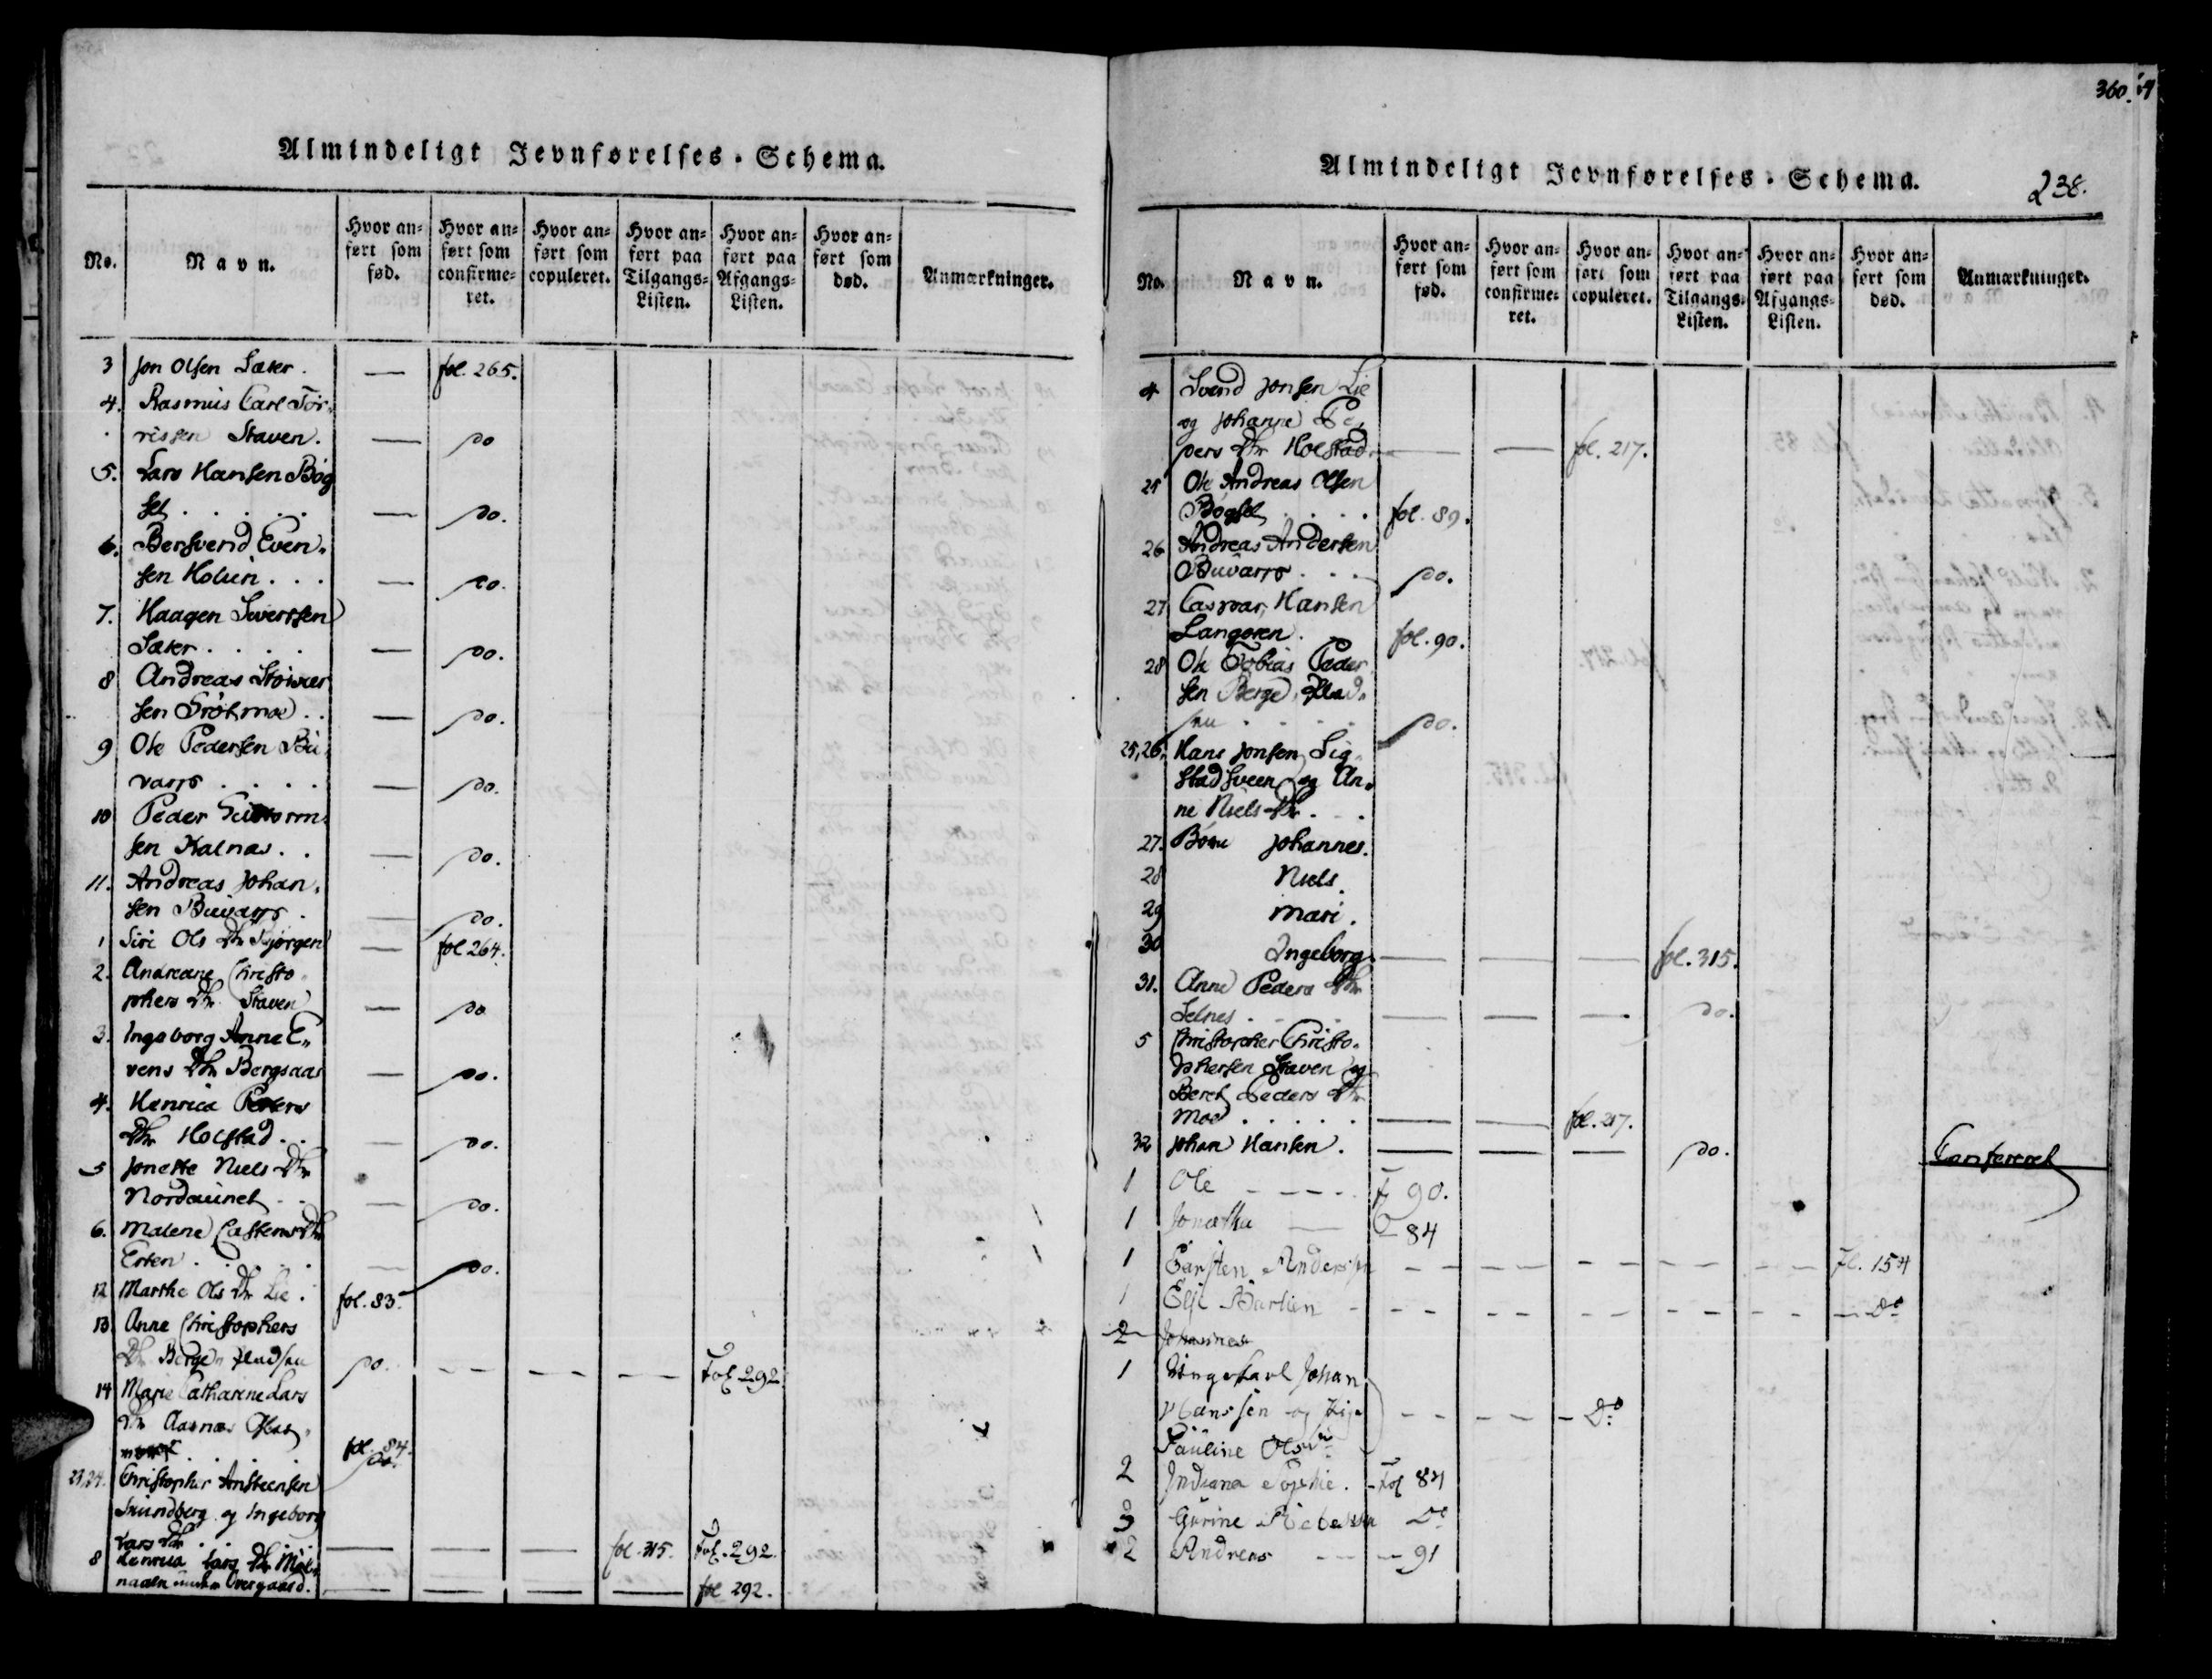 Almindeligt Jevnførelses-Schema.
No.
Navn.
Hvor anført som fød.
Hvor anført som confirmeret.
Hvor anført som copuleret.
Hvor anført paa Tilgangs-Listen.
Hvor anført paa Afgangs-Listen.
Hvor anført som død.
Anmærkninger.
3 Jon Olsen Sæter. — fol. 265.
4. Rasmus Carl Tør-
rissen Staven. — do
5. Lars Hansen Bøg
set . . . . — do.
6. Bersvend Even-
sen Holum . . . — do.
7. Haagen Sivertsen
Sæter . . . . — do.
8 Andreas
sen Grøtmoe . . — do.
9 Ole Pedersen Bu-
varp . . . . — do.
10 Peder Guttorm-
sen Kalnæs . . — do.
11. Andreas Johan-
sen Buvarp . — do.
1 Siri Ols Dtr Bjørgen — fol 264.
2. Andreane Christo-
phers Dtr Staven — do
3. Ingeborg Anne E-
vens Dtr Bergsaas — do.
4. Henrica Peters
Dtr Holstad . . — do.
5 Jonette Niels Dtr
Nordaunet . . — do.
6. Malene Castens Dtr
Erten . . . . — do.
12 Marthe Ols Dtr Lie . fol. 83.
13 Anne Christophers
Dtr Berge Pladsen do. — — — Fol 292
14 Marie Catharine Lars
Dtr Aasnæs
fol. 84.
do.
23,24. Christopher Arnsteensen
Smundberg og Ingeborg
Lars Dtr . . — — — fol. 315. Fol. 292.
8 Henrica Lars Dtr
Overgaard. — — — — fol 292.
360.
Almindeligt Jevnførelses-Schema.
238.
No.
Navn.
Hvor anført som fød.
Hvor anført som confirmeret.
Hvor anført som copuleret.
Hvor anført paa Tilgangs-Listen.
Hvor anført paa Afgangs-Listen.
Hvor anført som død.
Anmærkninger.
4 Svend Jonsen Lie
og Johanne Pe-
ders Dtr Holstad — — fol. 217.
25 Ole Andreas Olsen
Bøgset . . . . fol. 89.
26 Andreas Andersen
Buvarp . . . do.
27 Casper Hansen
Langøren . fol. 90.
28 Ole Tobias Peder
sen Berge Plad-
sen . . . . do.
25,26. Hans Jonsen Lig-
stadsveen og An-
ne Niels Dtr . . .
27. Børn Johannes.
28 Niels.
29 Mari.
30 Ingeborg — — — fol. 315.
31. Anne Peders Dtr
Selnes . . . — — — do.
5 Christopher Christo-
phersen Staven og
Beret Peders Dtr
Moe . . . . . — — fol. 217.
32 Johan Hansen. — — — do.
Confereret
1 Ole — — — 90.
1 Jonetta — 84
1 Carsten Andersen — — — — — Fl. 154
1 Elje — — — — — Do
2 Johannes
1 Ungekarl Johan
Hanssen og Pige
Pauline Olsdr — — — Do
2 Indiana Sophie. — Fol 84
3 Gurine Do
2 Andreas — — 91